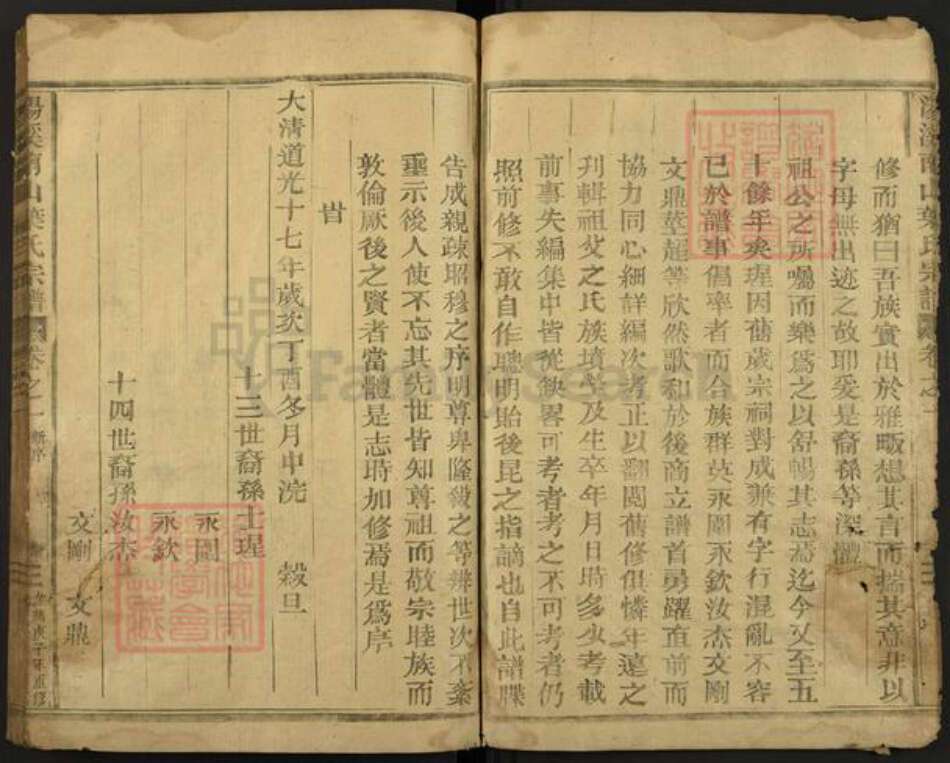 修而猶曰吾族實出於雅畈想其言而揣其意非以
字母無出迹之故耶爰是裔孫等深體
祖公之所囑而樂爲之以舒暢其志焉迄今又至五
十餘年矣瑆因舊歲宗祠對成兼有字行混亂不容
已於譜事倡率者而合族群英永圍永欽汝杰文剛
文鼎萃超等欣然歌和於後商立譜首勇躍直前而
協力同心細詳編次考正以翻閱舊修俱憐年遠之
刊輯祖父之氏族墳塋及生卒年月日時多少考載
前事失編集中皆從缺畧可考者考之不可考者仍
照前修不敢自作聰明貽後昆之指謫也自此譜牒
告成親疎昭穆之序明尊卑隆殺之等辨世次不紊
垂示後人使不忘其先世皆知尊祖而敬宗睦族而
敦倫厥後之賢者當體是志時加修焉是爲序
旹
大清道光十七年歲次丁酉冬月中浣 穀旦
十三世裔孫士瑆
永圍
永欽
十四世裔孫汝杰
文剛 文鼎
湯溪南山葉氏宗譜 卷之一 新序